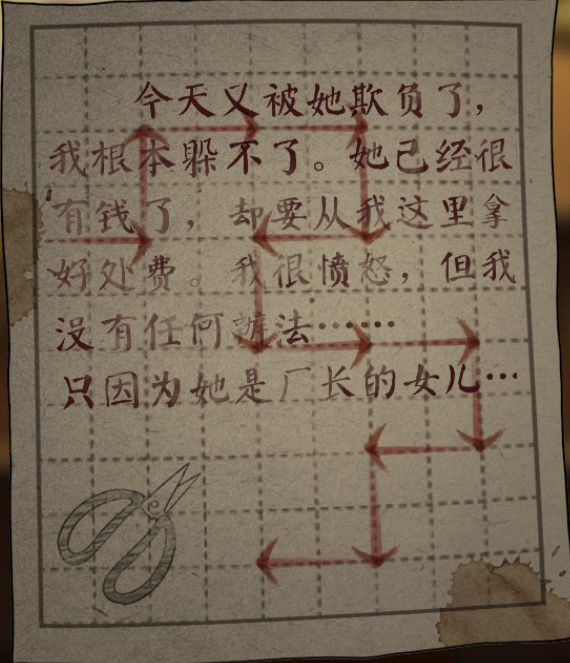 今天又被她欺负了，
我根本躲不了。她已经很
有钱了，却要从我这里拿
好处费。我很愤怒，但我
没有任何办法……
只因为她是厂长的女儿…